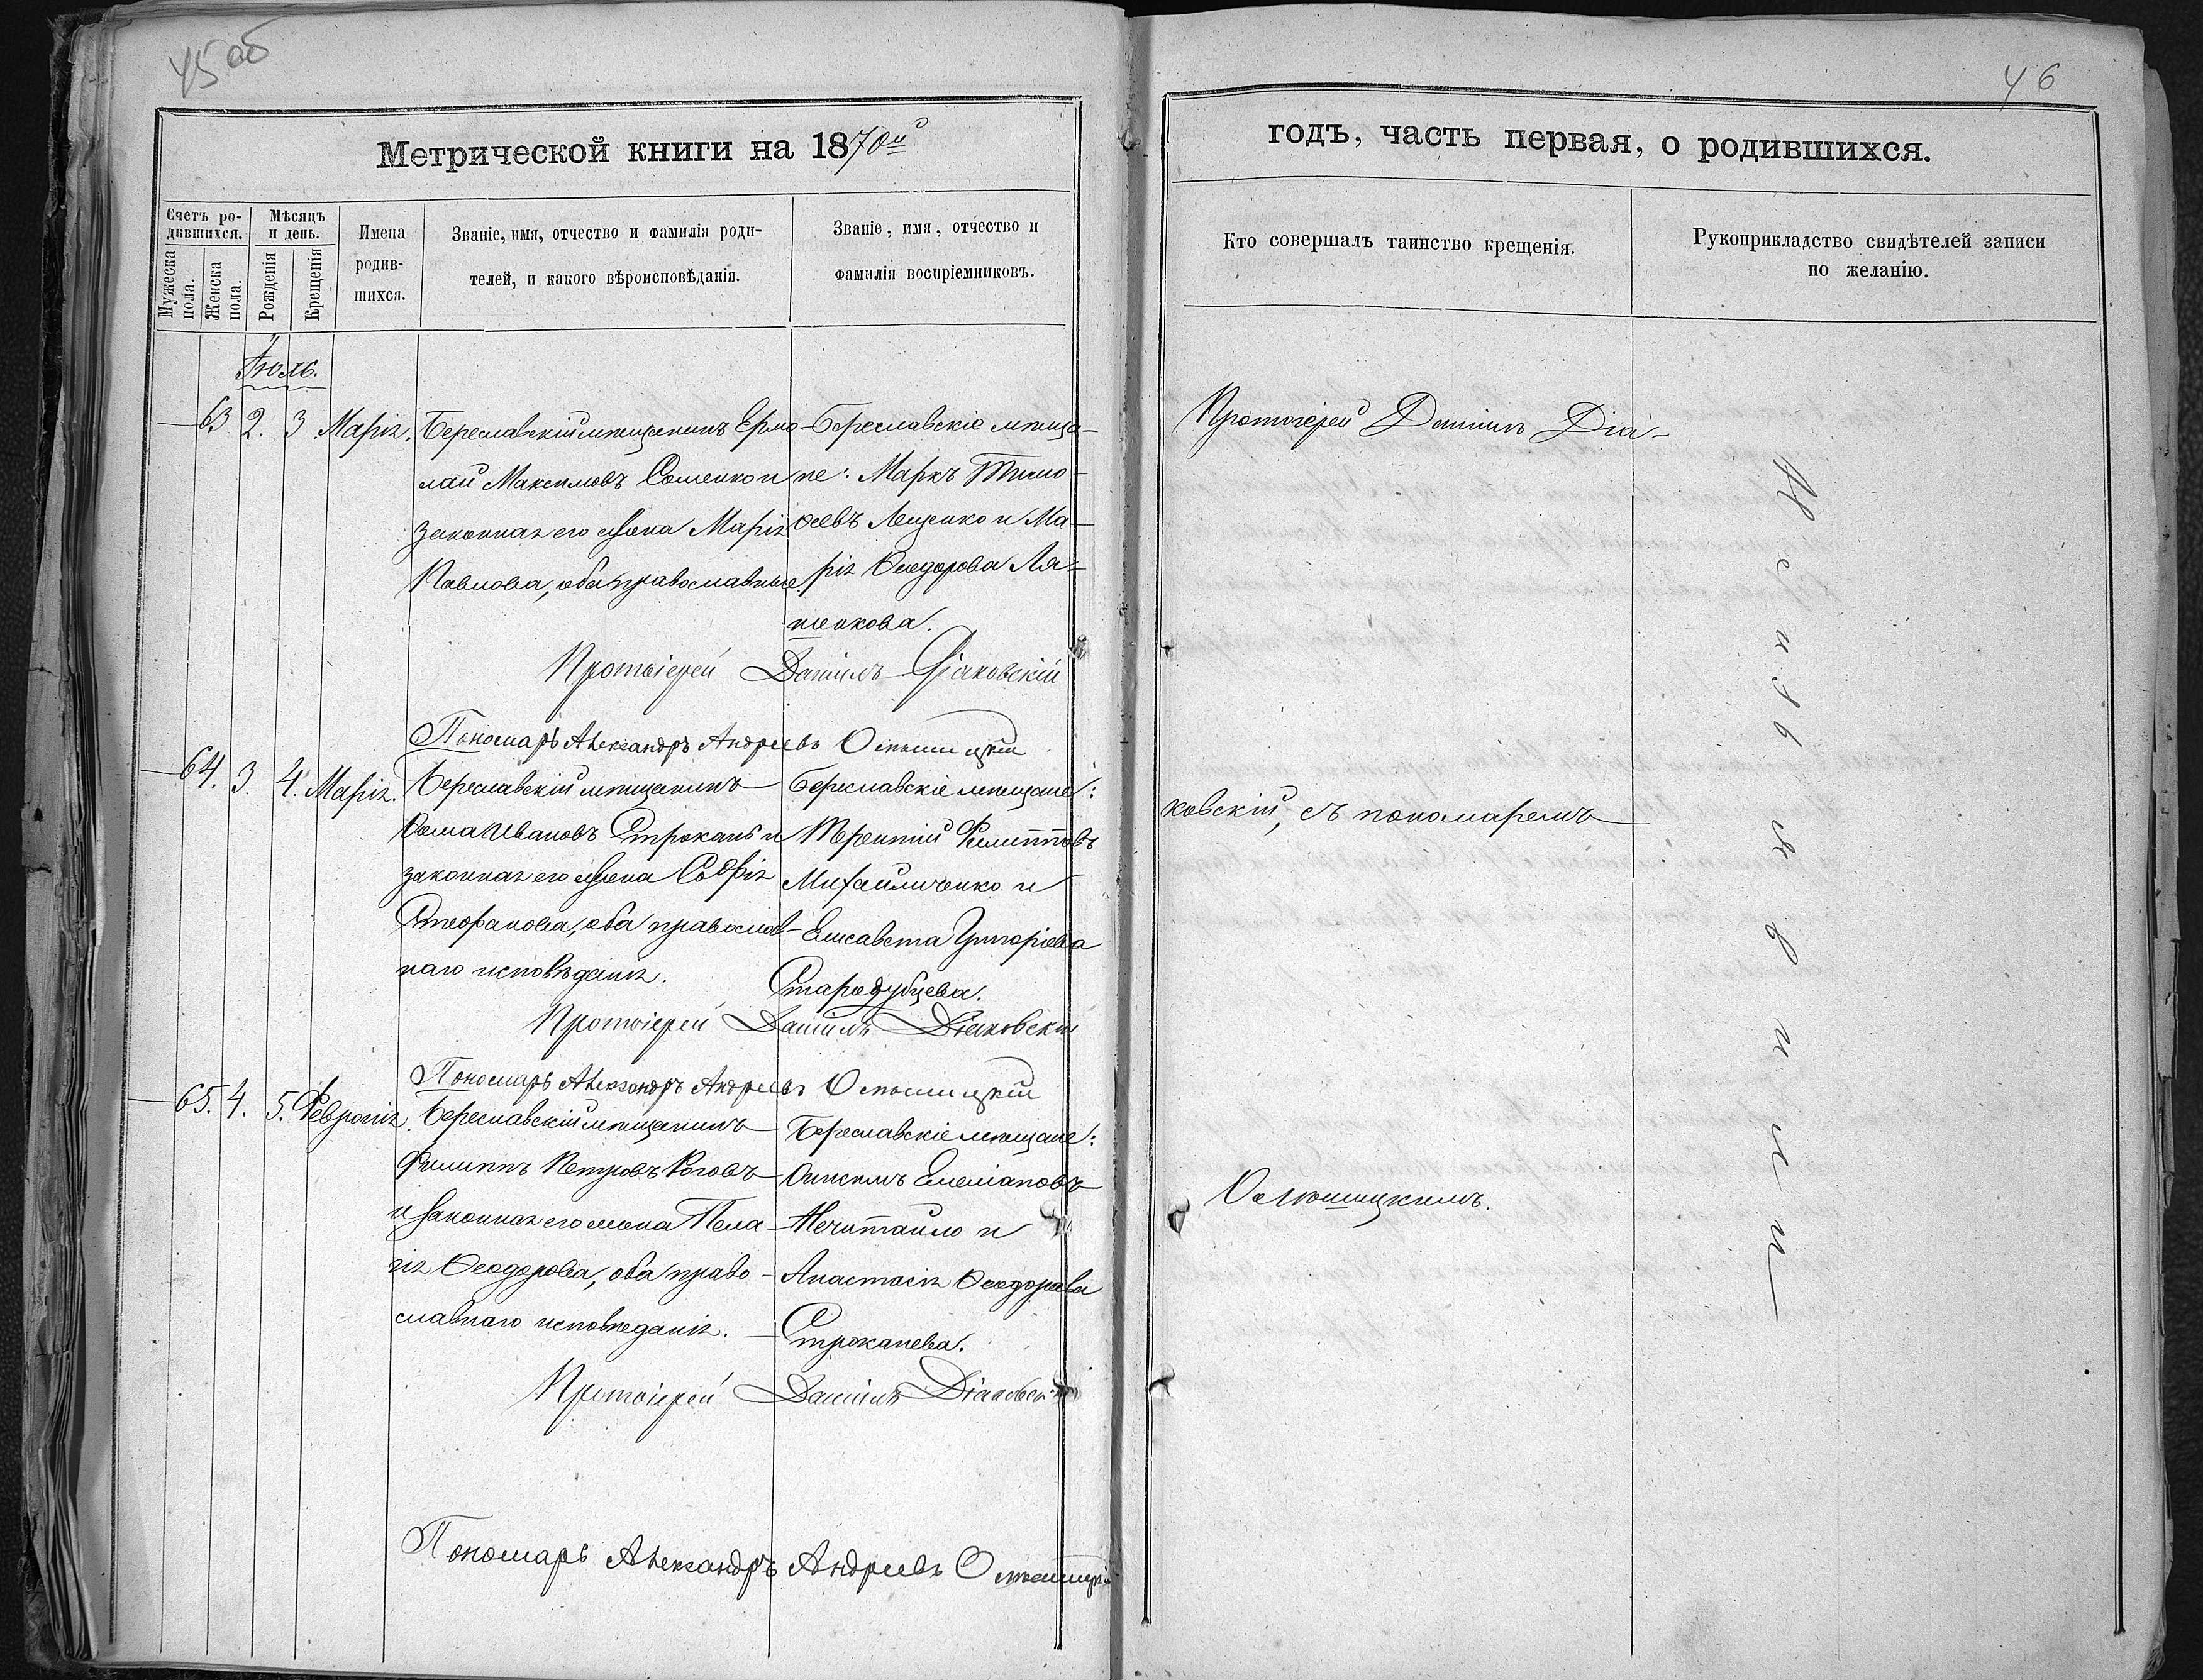 45 об
46
Метрической книги на 1870й
годъ, часть первая, о родившихся.
Счетъ ро-
дившихся.
Мужеска пола.
Женска пола.
Мѣсяцъ
и день.
Рожденія
Крещенія
Имена
родив-
шихся.
Званіе, имя, отчество и фамилія роди-
телей, и какого вѣроисповѣданія.
Званіе, имя, отчество и
фамилія воспріемниковъ.
Кто совершалъ таинство крещенія.
Рукоприкладство свидѣтелей записи
по желанію.
Іюль.
63. 2. 3. Марія.
Береславскій мѣщанинъ Ермо-
лай Максимовъ Соменко и
законная его жена Марія
Павлова, оба православные.
Береславскіе мѣща-
не: Маркъ Тимо-
ѳеевъ Лещенко и Ма-
рія Ѳеодорова Ля-
шенкова.
Протоіерей Даніилъ Діаковскій
Пономарь Александръ Андреевъ
64. 3. 4. Марія.
Береславскій мѣщанинъ
Ѳома Ивановъ Строкань и
законная его жена Софія
Стефанова, оба православ-
наго исповѣданія.
Береславскіе мѣщане:
Терентій Филипповъ
Михайличенко и
Елисавета Григоріева
Стародубцева.
Протоіерей Даніилъ Діаковскій
Пономарь Александръ Андреевъ
65. 4. 5. Февронія.
Береславскій мѣщанинъ
Филиппъ Петровъ Роговъ
и законная его жена Пела-
гія Ѳеодорова, оба право-
славнаго исповѣданія.
Береславскіе мѣщане:
Онисимъ Емеліановъ
Нечитайло и
Анастасія Ѳеодорова
Строканева.
Протоіерей Даніилъ Діаковскій
Пономарь Александръ Андреевъ
Протоіерей Даніилъ Діа-
ковскій, съ пономаремъ
Неизвѣстны